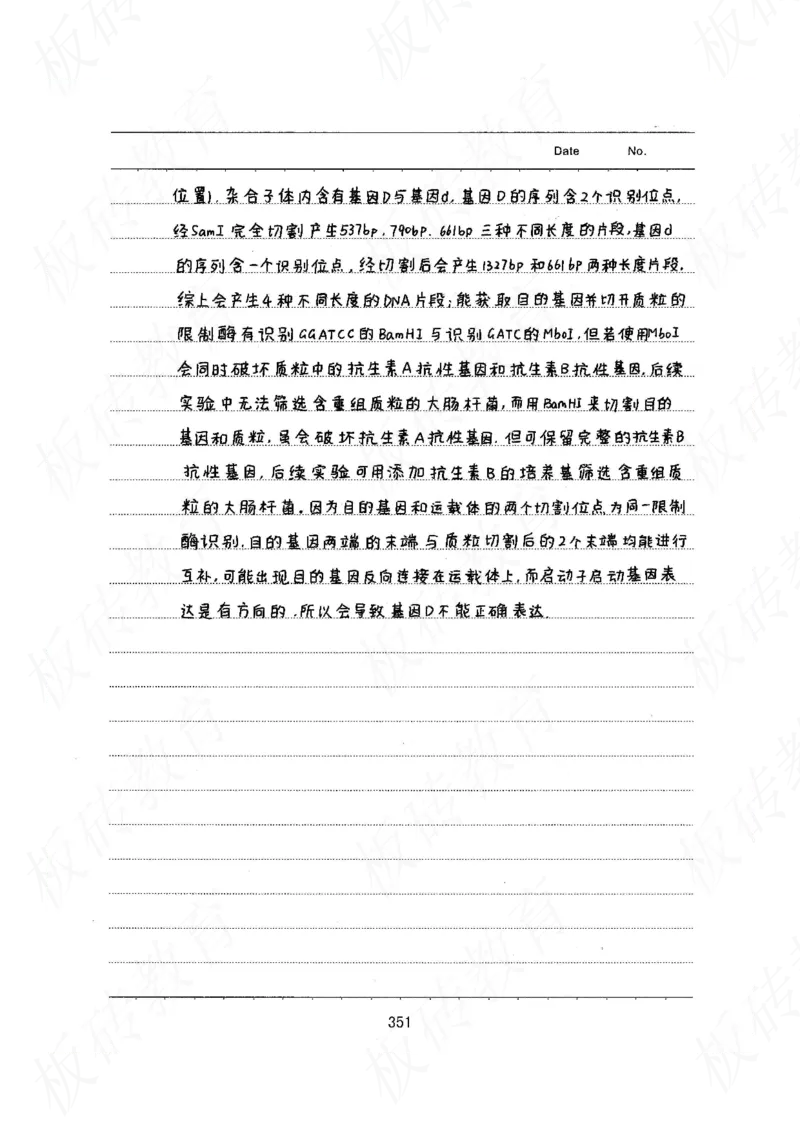 Date No.
位置). 杂合子体内含有基因D与基因d, 基因D的序列含2个识别位点,
经SamI完全切割产生537bp. 790bp. 661bp 三种不同长度的片段, 基因d
的序列含一个识别位点, 经切割后会产生1327bp 和661bp两种长度片段.
综上会产生4种不同长度的DNA片段; 能获取目的基因并切开质粒的
限制酶有识别GGATCC的BamHI与识别GATC的MboI, 但若使用MboI
会同时破坏质粒中的抗生素A抗性基因和抗生素B抗性基因, 后续
实验中无法筛选含重组质粒的大肠杆菌, 而用BamHI来切割目的
基因和质粒, 虽会破坏抗生素A抗性基因. 但可保留完整的抗生素B
抗性基因, 后续实验可用添加抗生素B的培养基筛选含重组质
粒的大肠杆菌. 因为目的基因和运载体的两个切割位点为同一限制
酶识别. 目的基因两端的末端与质粒切割后的2个末端均能进行
互补, 可能出现目的基因反向连接在运载体上, 而启动子启动基因表
达是有方向的. 所以会导致基因D不能正确表达.
351
板砖教育